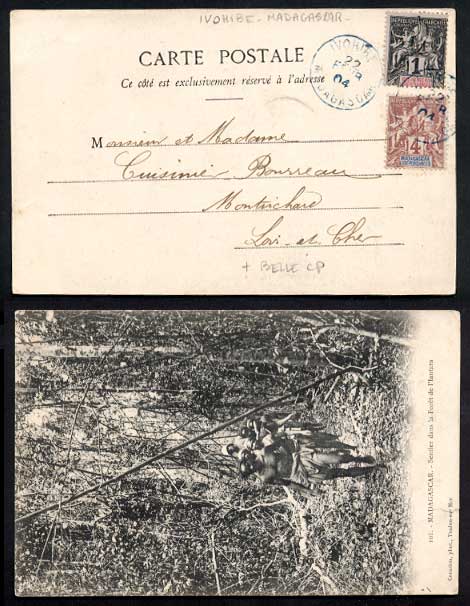 IVOHIBE - MADAGASCAR -
CARTE POSTALE
Ce côté est exclusivement réservé à l'adresse
IVOHIBE
22
FEVR
04
MADAGASCAR
REPUBLIQUE FRANÇAISE
1
4
MADAGASCAR
ET DEPENDANCES
Monsieur et Madame
Cuisinier Bourreau
Montrichard
Loir-et-Cher
+ BELLE CP
101. - MADAGASCAR. - Sentier dans la Forêt de
phot., Toulon-sur-Mer